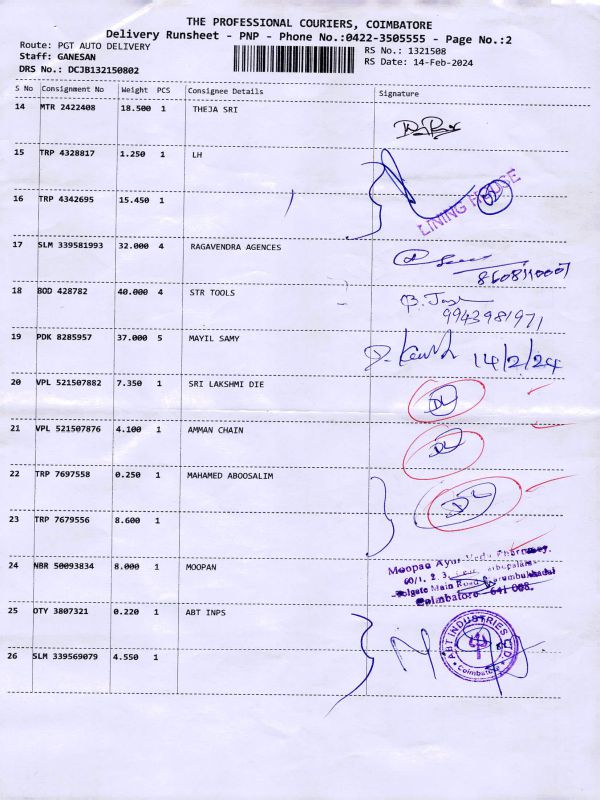 THE PROFESSIONAL COURIERS, COIMBATORE
Delivery Runsheet - PNP - Phone No.:0422-3505555 - Page No.:2
Route: PGT AUTO DELIVERY
RS No.: 1321508
Staff: GANESAN
RS Date: 14-Feb-2024
DRS No.: DCJB132150802
S No Consignment No Weight PCS Consignee Details Signature
14 MTR 2422408 18.500 1 THEJA SRI
15 TRP 4328817 1.250 1 LH
16 TRP 4342695 15.450 1
LINING HOUSE
17 SLM 339581993 32.000 4 RAGAVENDRA AGENCES
18 BOD 428782 40.000 4 STR TOOLS
9943981971
19 PDK 8285957 37.000 5 MAYIL SAMY
14/2/24
20 VPL 521507882 7.350 1 SRI LAKSHMI DIE DL
21 VPL 521507876 4.100 1 AMMAN CHAIN DL
22 TRP 7697558 0.250 1 MAHAMED ABOOSALIM DL
23 TRP 7679556 8.600 1
24 NBR 50093834 8.000 1 MOOPAN
Moopan Ayur Veda Pharmacy.
60/1, 2, 3,
Main Road
Coimbatore - 641 008.
25 OTY 3807321 0.220 1 ABT INPS
ABT INDUSTRIES LTD.
Coimbatore
26 SLM 339569079 4.550 1